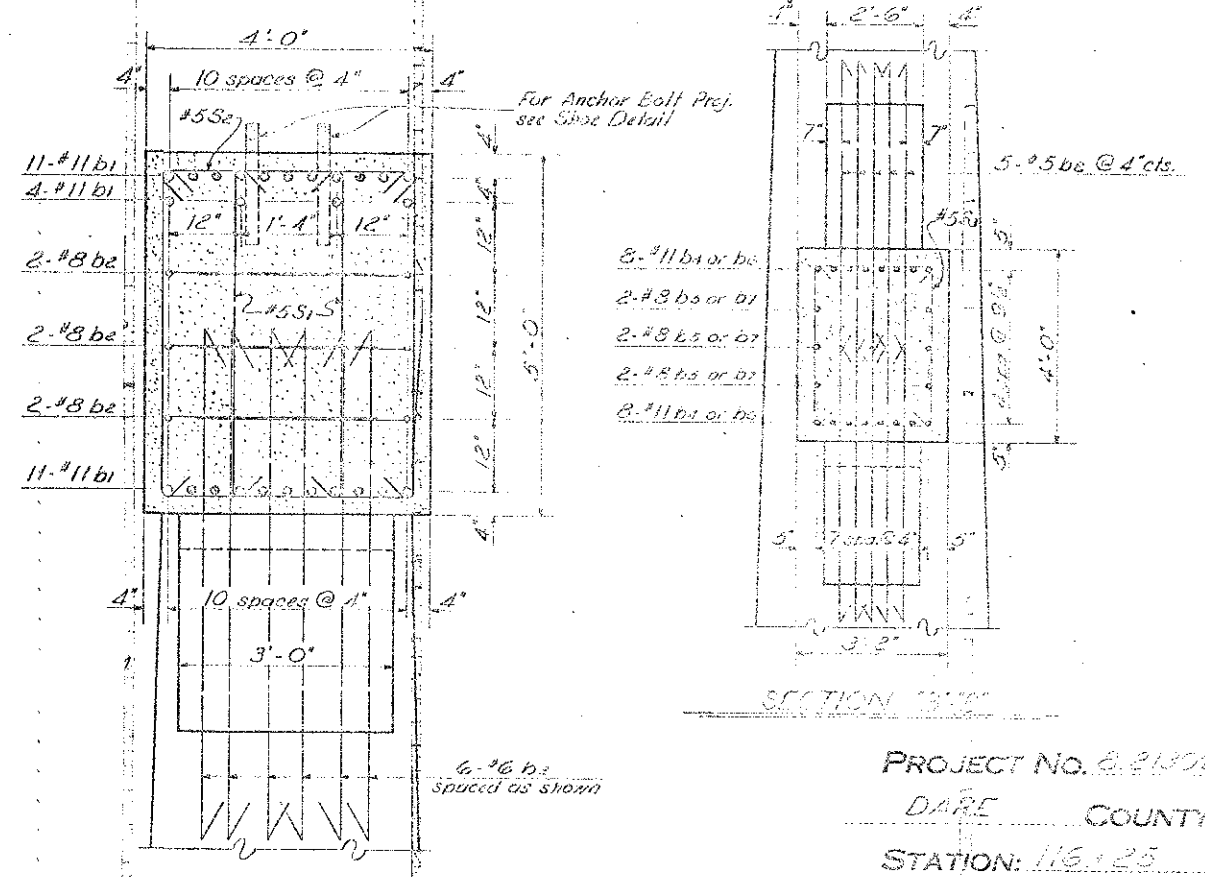 4'-0"
4" 10 spaces @ 4" 4"
#5S2
For Anchor Bolt Proj.
see Shoe Detail
4"
11-#11 b1
4-#11 b1
4"
12" 1'-4" 12"
12"
2-#8 b2
#5S1
12"
5'-0"
2-#8 b2
12"
2-#8 b2
12"
11-#11 b1
4"
4" 10 spaces @ 4" 4"
3'-0"
6-#6 b3
spaced as shown
2'-6" 4"
7" 7"
5-#5 b8 @ 4" cts.
5"
8-#11 b4 or b6
2-#8 b5 or b7
2-#8 b5 or b7
2-#8 b5 or b7
8-#11 b4 or b6
4'-0"
5"
5" 5"
3'-2"
SECTION
PROJECT NO.
DARE COUNTY
STATION: 116+25